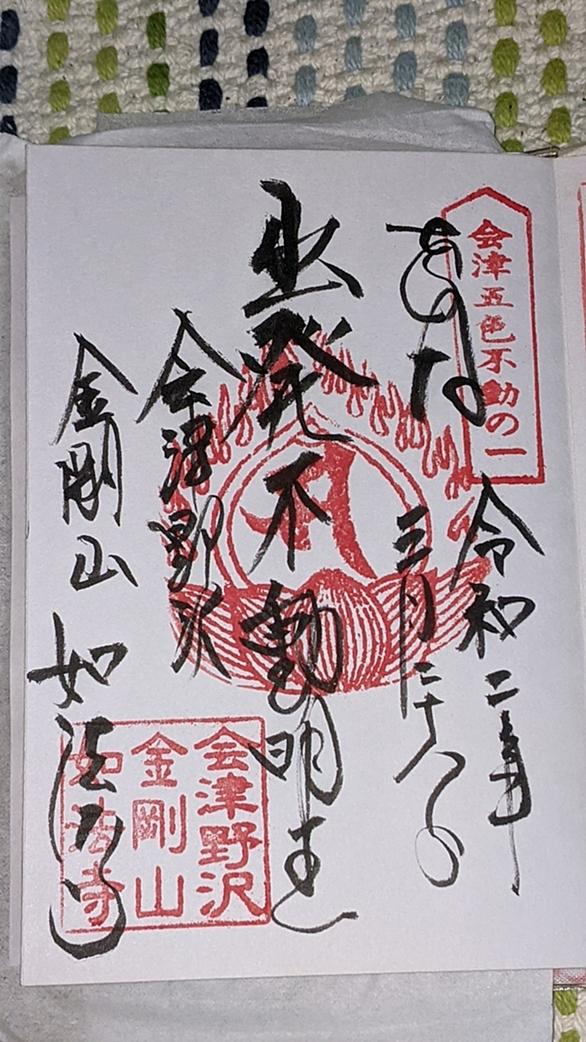 会津五色不動の一
奉拝
令和二年
三月二十八日
出発不動明王
会津野沢
金剛山 如法寺
会津野沢
金剛山
如法寺